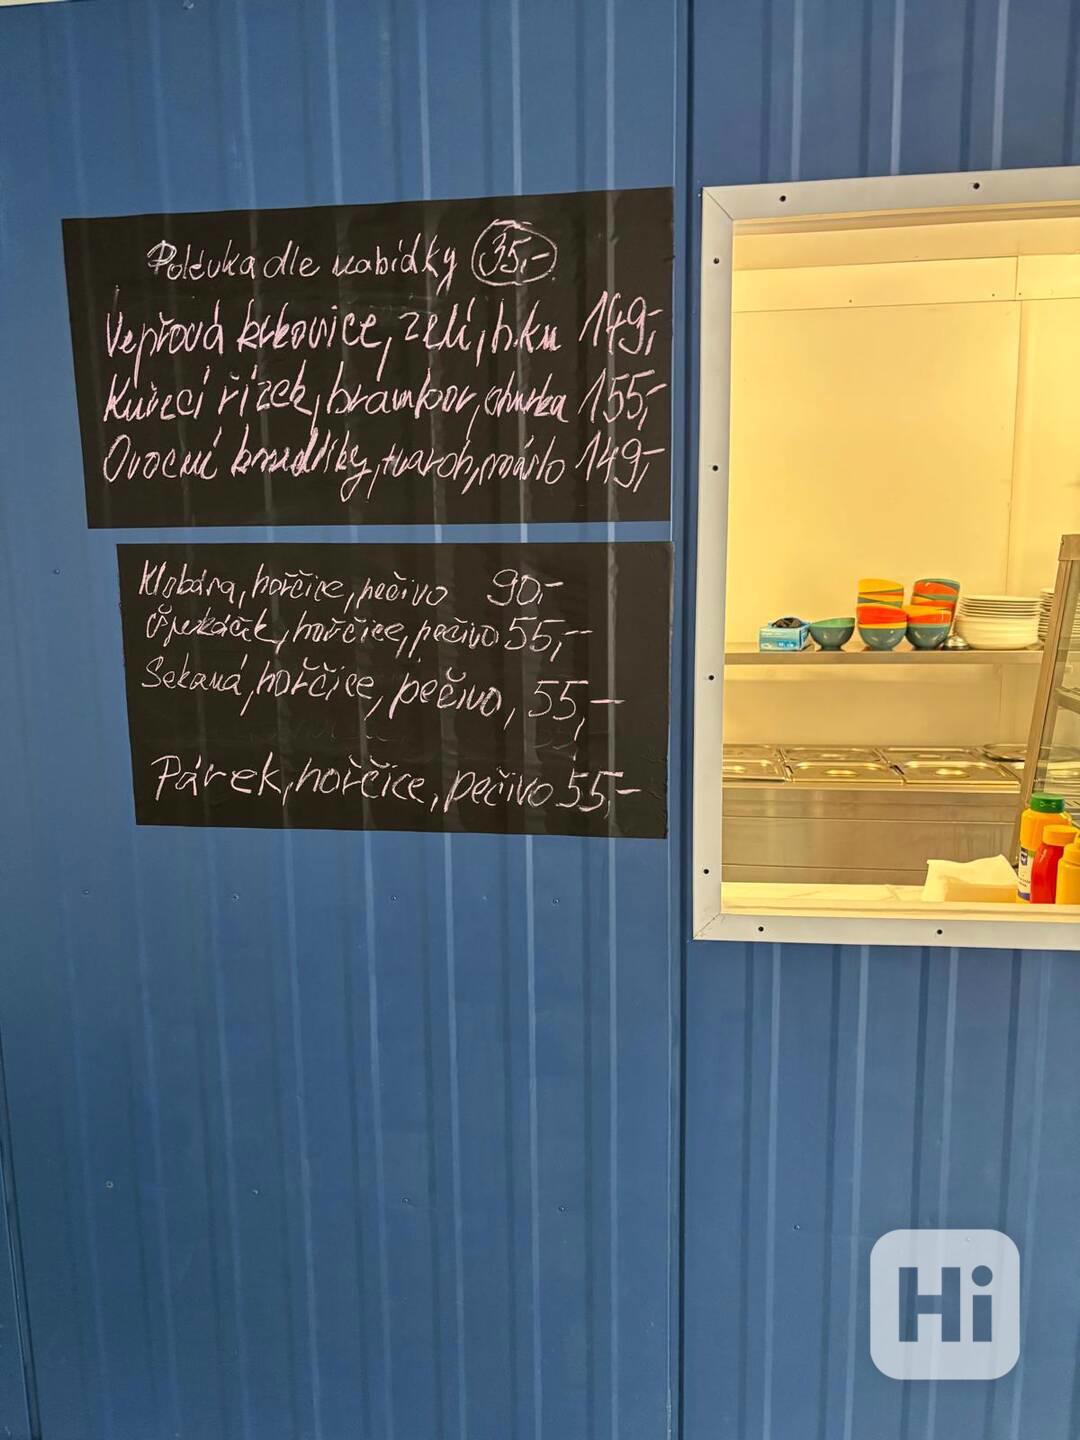 Polévka dle nabídky 35,-
Vepřová krkovice, zelí, h.kn 149,-
Kuřecí řízek, brambor, okurka 155,-
Ovocné knedlíky, tvaroh, máslo 149,-
Klobása, hořčice, pečivo 90,-
Špekáček, hořčice, pečivo 55,-
Sekaná, hořčice, pečivo, 55,-
Párek, hořčice, pečivo 55,-
Hi